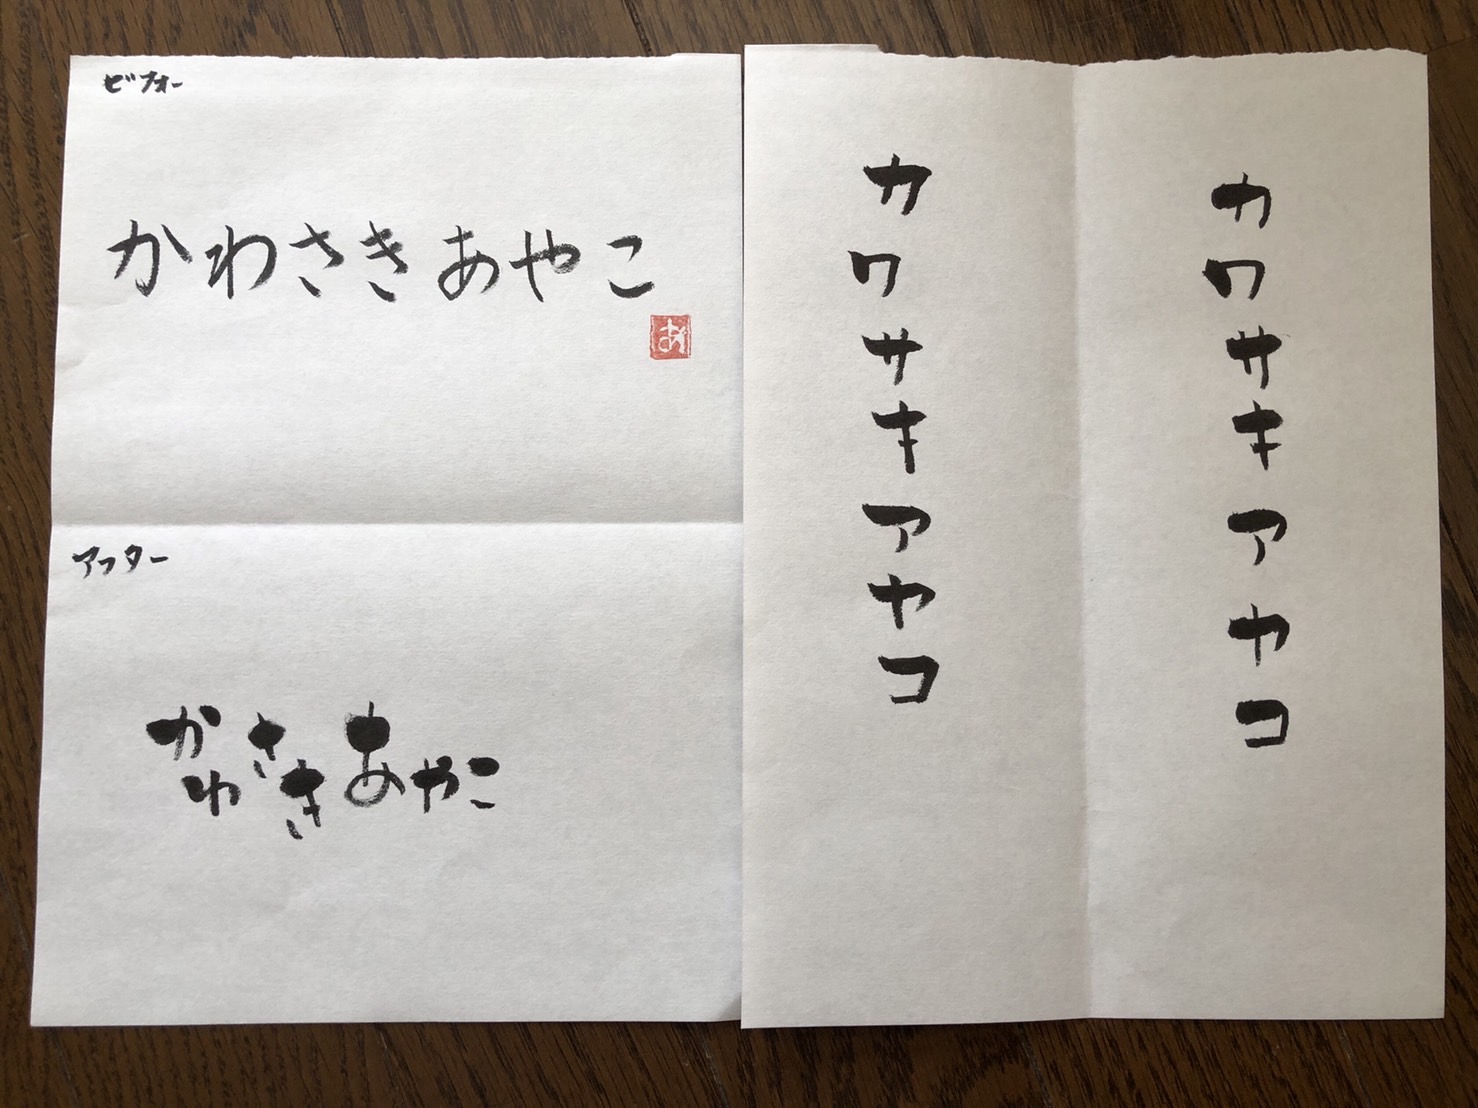 ビフォー
かわさきあやこ
あ
アフター
かわさきあやこ
カワサキアヤコ
カワサキアヤコ